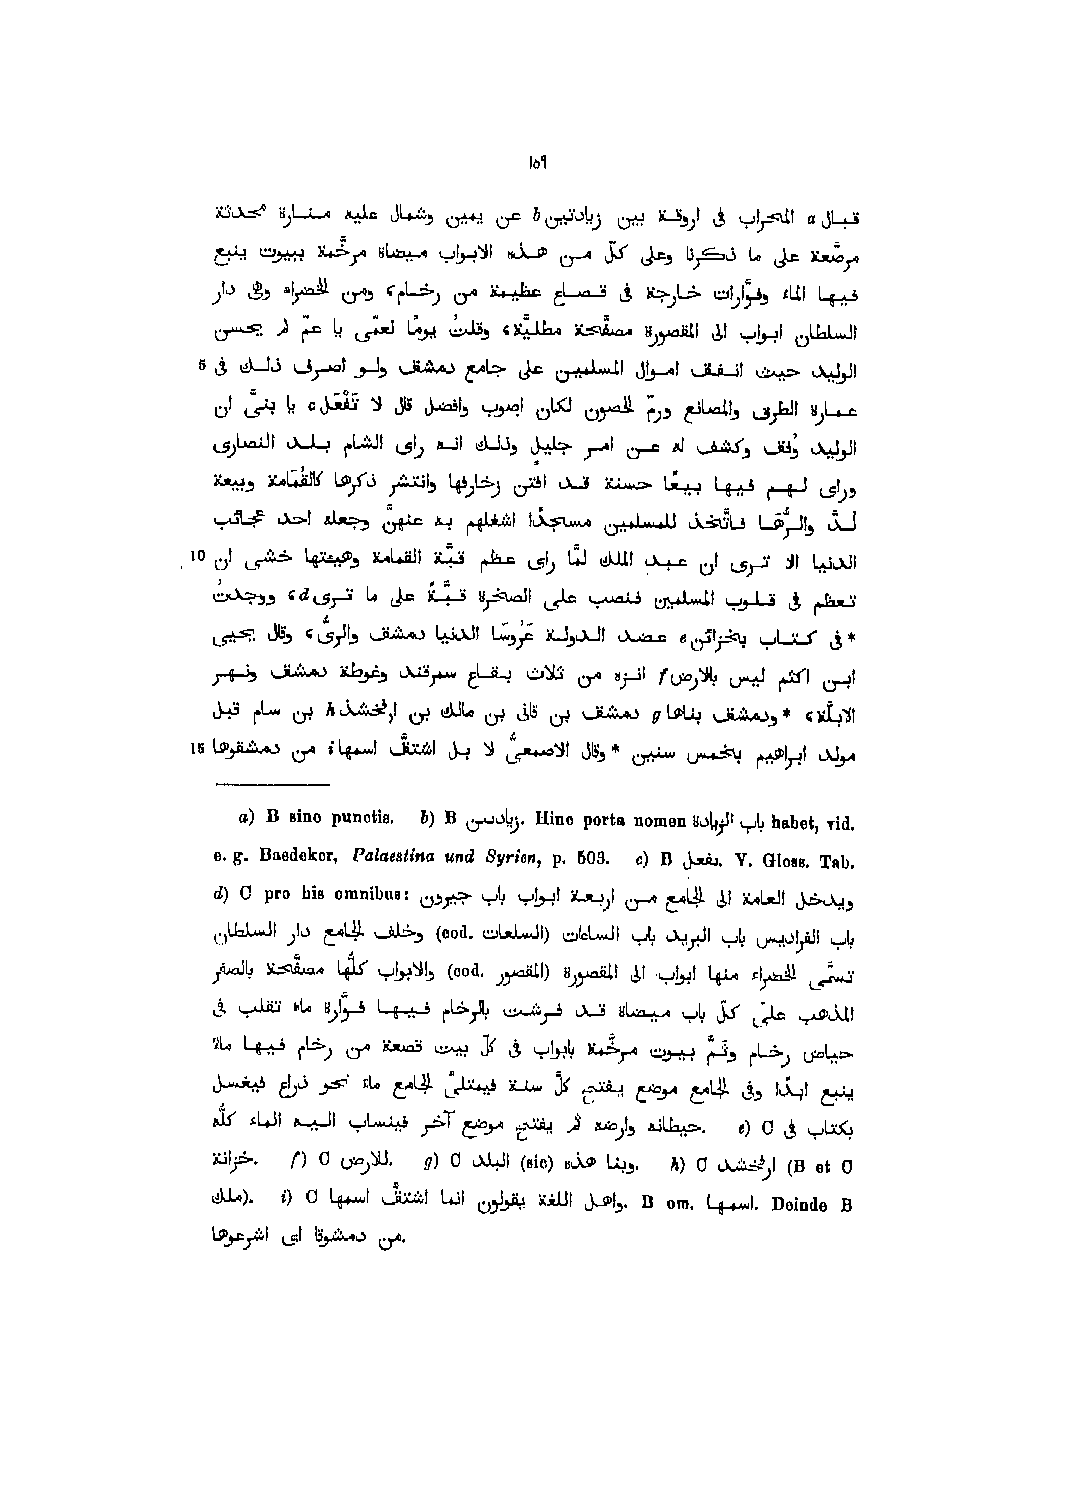 ١٥٩
قبال a المحراب فى اروقة بين زيادتين b عن يمين وشمال عليه منارة محدثة
مرصّعة على ما ذكرنا وعلى كلّ من هذه الابواب ميضاة مرخّمة ببيوت ينبع
فيها الماء وفوّارات خارجة فى قصاع عظيمة من رخام، ومن الخضراء وهى دار
السلطان ابواب الى المقصورة مصفّحة مطليّة، وقلتُ يومًا لعمّى يا عمّ لم يحسن
الوليد حيث انفق اموال المسلمين على جامع دمشق ولو اصرف ذلك فى 5
عمارة الطرق والمصانع ورمّ الحصون لكان اصوب وافضل قال لا تَغْفَل c يا بنىَّ ان
الوليد وُفّق وكشف له عن امر جليل وذلك انه راى الشام بلد النصارى
وراى لهم فيها بيعًا حسنة قد افتن زخارفها وانتشر ذكرها كالقُمَامة وبيعة
لُدّ والرُّهَا فاتّخذ للمسلمين مسجدًا اشغلهم به عنهنَّ وجعله احد عجائب
الدنيا الا ترى ان عبد الملك لمّا راى عظم قبّة القمامة وهيئتها خشى ان 10
تعظم فى قلوب المسلمين فنصب على الصخرة قبَّةً على ما ترى d، ووجدتُ
*فى كتاب بخزائن e عضد الدولة عَرُوسَا الدنيا دمشق والرىُّ، وقال يحيى
ابن اكثم ليس بالارض f انزه من ثلاث بقاع سمرقند وغوطة دمشق ونهر
الابلّة، *ودمشق بناها g دمشق بن قانى بن مالك بن ارفخشذ h بن سام قبل
مولد ابراهيم بخمس سنين *وقال الاصمعىُّ لا بل اشتقّ اسمها i من دمشقوها 15
a) B sine punctis. b) B زيادىىں. Hinc porta nomen باب الزيادة habet, vid.
e. g. Baedeker, Palaestina und Syrien, p. 503. c) B ىفعل. V. Gloss. Tab.
d) C pro his omnibus: ويدخل العامة الى الجامع من اربعة ابواب باب جيرون
باب الفراديس باب البريد باب الساعات (cod. السلعات) وخلف الجامع دار السلطان
تسمَّى الخضراء منها ابواب الى المقصورة (cod. المقصور) والابواب كلُّها مصفّحة بالصفر
المذهب على كلّ باب ميضاة قد فرشت بالرخام فيها فوّارة ماء تقلب فى
حياض رخام وثمَّ بيوت مرخَّمة بابواب فى كلّ بيت قصعة من رخام فيها ماء
ينبع ابدًا وفى الجامع موضع يفتح كلّ سنة فيمتلئُ الجامع ماء نحو ذراع فيغسل
حيطانه وارضه ثم يفتح موضع آخر فينساب اليه الماء كلُّه. e) C بكتاب فى
خزانة. f) C للارض. g) C وبنا هذه (sic) البلد. h) C ارفخشد (B et C
ملك). i) C واهل اللغة يقولون انما اشتقّ اسمها. B om. اسمها. Deinde B
من دمشوقا اى اشرعوها.